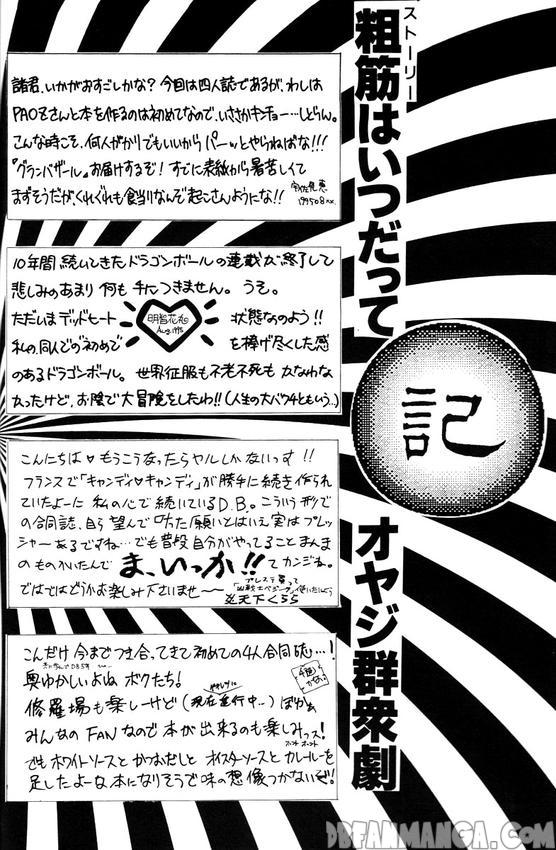 ストーリー
粗筋はいつだって
記
オヤジ群衆劇
諸君、いかがおすごしかな?今回は四人誌であるが、わしは
PAOZさんと本を作るのは初めてなので、いささかキンチョー…しとらん。
こんな時こそ、何人がかりでもいいからパーッとやらねばな!!!
『グランバザール』お届けするぞ!すでに表紙から暑苦しくて
まずそうだが、くれぐれも食当りなんぞ起こさんようにな!!
10年間続いてきたドラゴンボールの連載が終了して
悲しみのあまり何も手につきません。うそ。
ただいまデッドヒート
状態なのよう!!
明智花丸
Aug.1995
私の同人での初めで
を捧げ尽くした感
のあるドラゴンボール。世界征服も不老不死もかなわな
かったけど、お陰で大冒険をしたわ!!(人生の大バクチという…)
こんにちは♥もうこうなったらヤルしかないっす!!
フランスで「キャンディ♥キャンディ」が勝手に続き作られ
ていたよーに私の心で続いているD.B.。こういう形で
の合同誌、自ら望んで叶った願いとはいえ実はプレッ
シャーあるですね…でも普段自分がやってることまんま
のものかいたんで ま、いっか!!てカンジね。
ではではどうかお楽しみ下さいませ〜
プレステ買って
天下くらら
こんだけ今までつき合ってきて初めての4人合同誌…!
奥ゆかしいよねボクたち!
修羅場も楽しーけど(現在進行中…)
みんなのFANなので本が出来るのも楽しみっス!
でもホワイトソースとかつおだしとオイスターソースとカレールーを
足したよーな本になりそうで味の想像つかないぜ!!
DBFANMANGA.COM